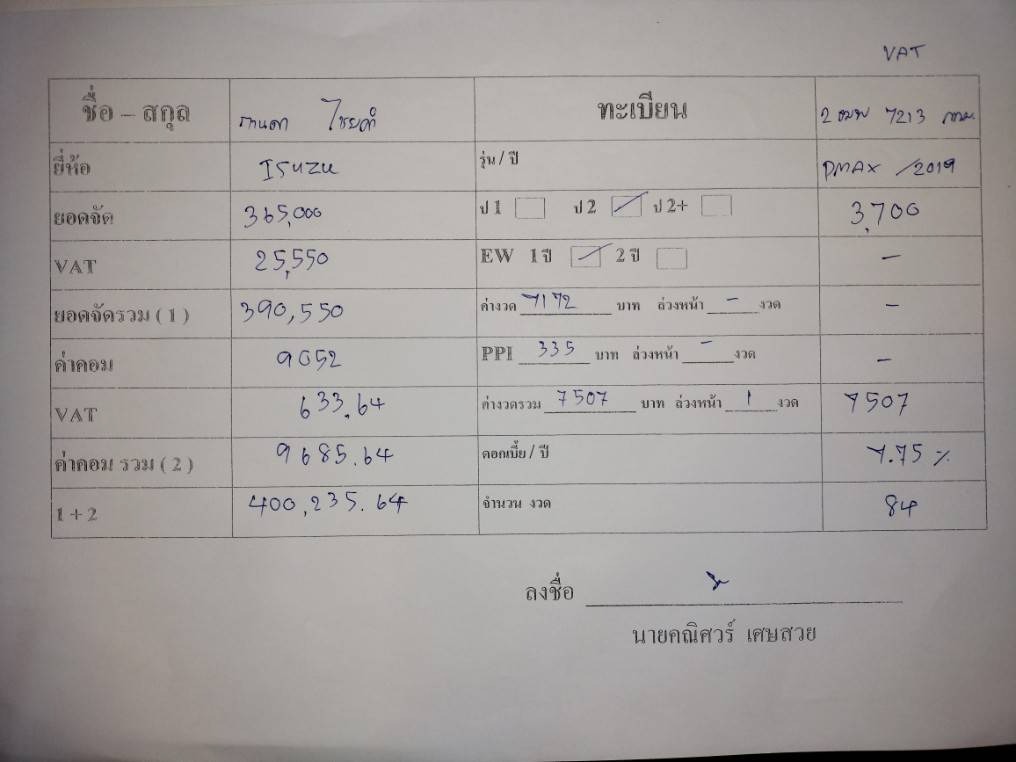 VAT
ชื่อ – สกุล ไชยคำ ทะเบียน 2 7213 กทม.
ยี่ห้อ ISUZU รุ่น / ปี DMAX /2019
ยอดจัด 365,000 ป 1 ป 2 ป 2+ 3,700
VAT 25,550 EW 1 ปี 2 ปี –
ยอดจัดรวม ( 1 ) 390,550 ค่างวด 7172 บาท ล่วงหน้า – งวด –
ค่าคอม 9052 PPI 335 บาท ล่วงหน้า – งวด –
VAT 633.64 ค่างวดรวม 7507 บาท ล่วงหน้า 1 งวด 7507
ค่าคอม รวม ( 2 ) 9685.64 ดอกเบี้ย / ปี 7.75 %
1 + 2 400,235.64 จำนวน งวด 84
ลงชื่อ
นายคณิศวร์ เศษสวย